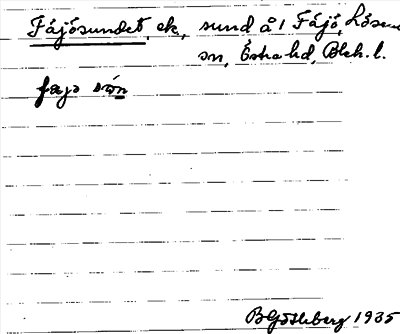 Fäjösundet, ek, sund å 1 Fäjö, Lösen
sn, Östra hd, Blek. l.
fajo sön
B Göthberg 1935